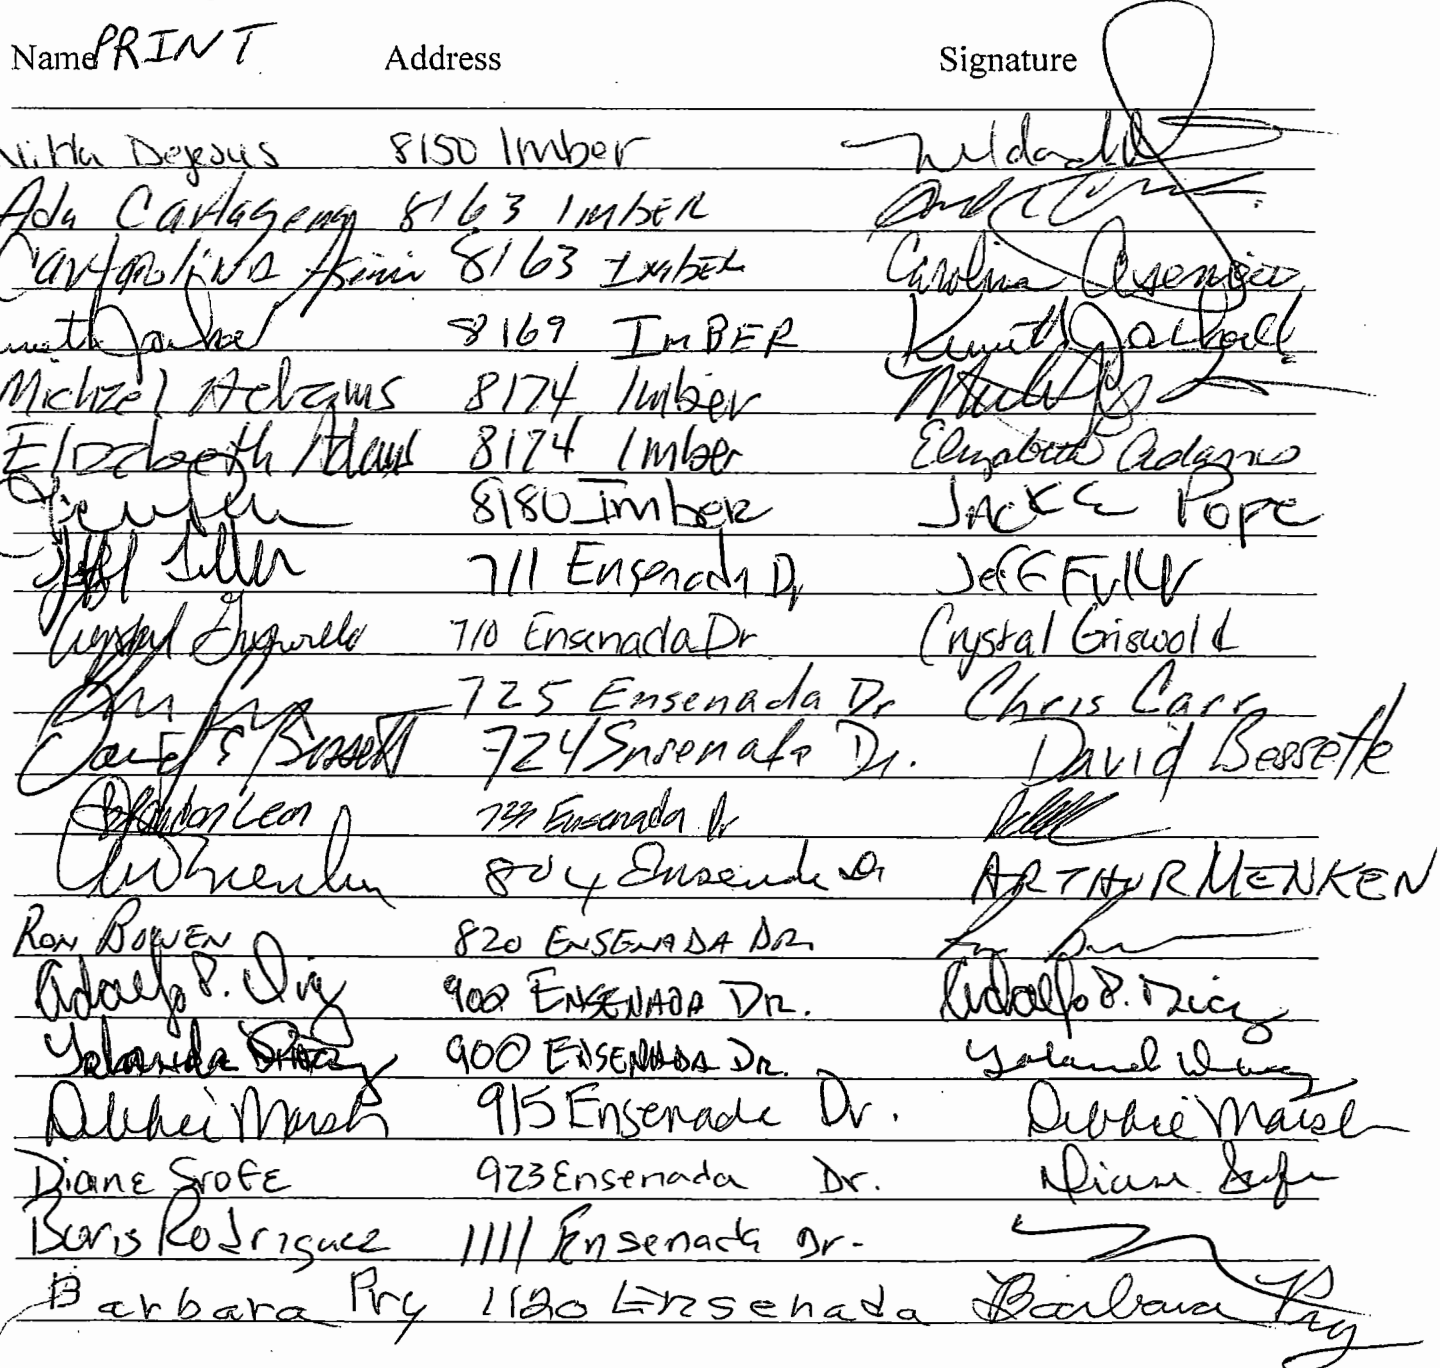 Name PRINT Address Signature
Degesus 8150 Imber
Ada Cartagena 8163 ImbER
8163 ImbER Carolina Asencio
8169 ImBER Kenneth
Michael Adams 8174 Imber
Elizabeth Adams 8174 Imber Elizabeth Adams
8180 Imber JACK E Pope
Jeff Fuller 711 Ensenada Dr Jeff Fuller
Crystal Griswold 710 Ensenada Dr. Crystal Griswold
725 Ensenada Dr Chris Carr
David Bessett 724 Ensenada Dr. David Bessette
Brandon Leon 733 Ensenada Dr
804 Ensenada Dr ARTHUR MENKEN
Ron BOWEN 820 ENSENADA DR.
Adolfo P. Diaz 900 ENSENADA DR. Adolfo P. Diaz
Yolanda Diaz 900 ENSENADA DR. Yoland Diaz
Debbie Marsh 915 Ensenada Dr. Debbie Marsh
Diane SroFE 923 Ensenada Dr. Diane Srofe
Boris Rodriguez 1111 Ensenada Dr.
Barbara Pry 1120 Ensenada Barbara Pry